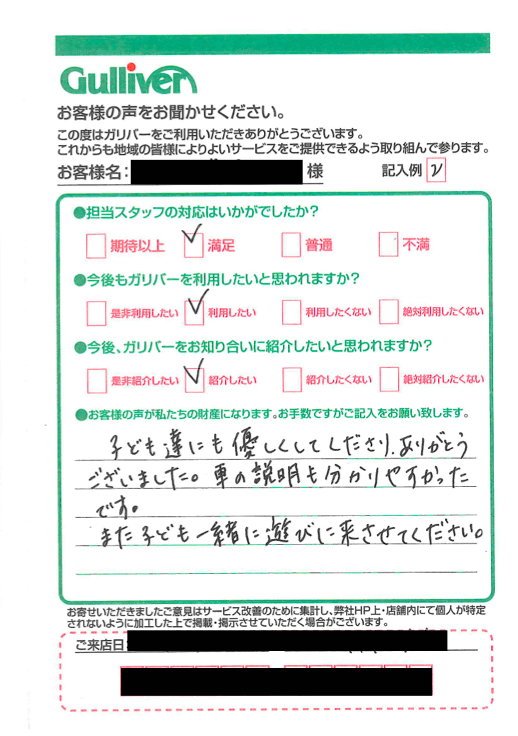 Gulliver
お客様の声をお聞かせください。
この度はガリバーをご利用いただきありがとうございます。
これからも地域の皆様によりよいサービスをご提供できるよう取り組んで参ります。
お客様名: 様 記入例 レ
●担当スタッフの対応はいかがでしたか?
期待以上 満足 普通 不満
●今後もガリバーを利用したいと思われますか?
是非利用したい 利用したい 利用したくない 絶対利用したくない
●今後、ガリバーをお知り合いに紹介したいと思われますか?
是非紹介したい 紹介したい 紹介したくない 絶対紹介したくない
●お客様の声が私たちの財産になります。お手数ですがご記入をお願い致します。
子ども達にも優しくしてくださり、ありがとう
ございました。車の説明も分かりやすかった
です。
また子ども一緒に遊びに来させてください。
お寄せいただきましたご意見はサービス改善のために集計し、弊社HP上・店舗内にて個人が特定
されないように加工した上で掲載・掲示させていただく場合がございます。
ご来店日: